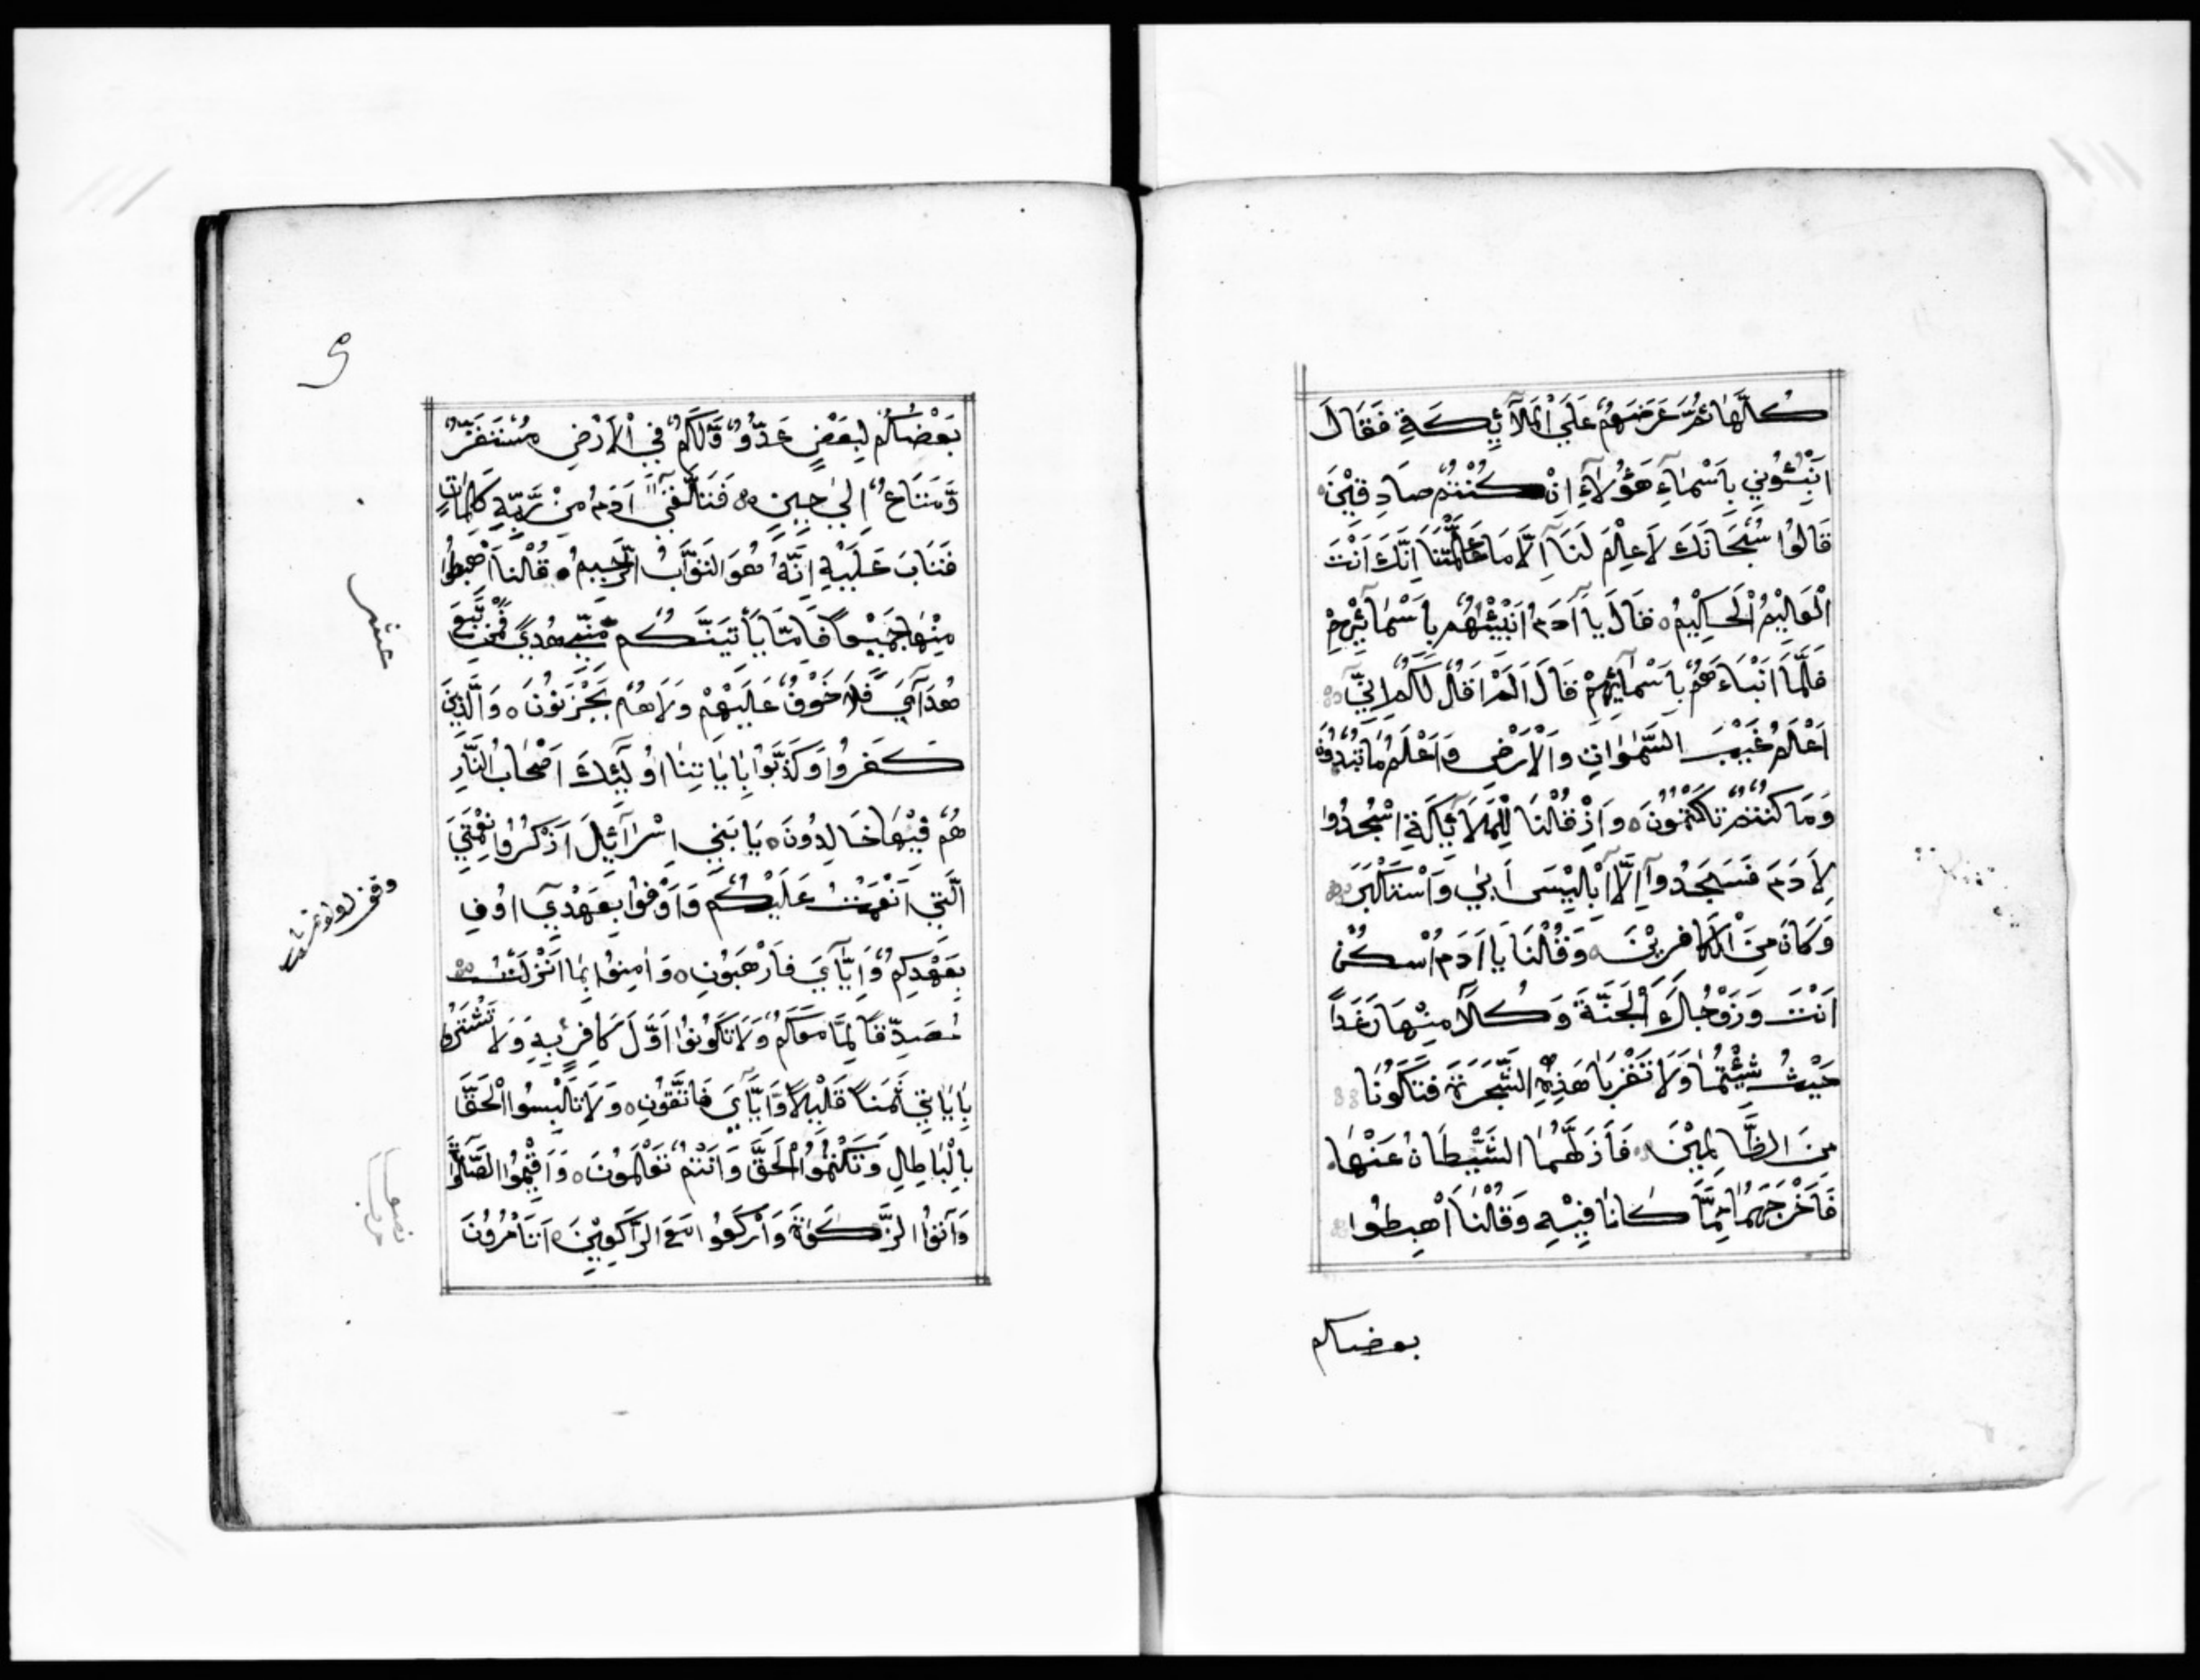 كُلَّهَا ثُمَّ عَرَضَهُمْ عَلَى الْمَلَآئِكَةِ فَقَالَ
اَنْبِئُونِي بِاَسْمَآءِ هَؤُلَآءِ اِنْ كُنْتُمْ صَادِقِيْنَ
قَالُوا سُبْحَانَكَ لَا عِلْمَ لَنَآ اِلَّا مَا عَلَّمْتَنَا اِنَّكَ اَنْتَ
الْعَالِيْمُ الْحَكِيْمُ قَالَ يَآ اَدَمُ اَنْبِئْهُمْ بِاَسْمَآئِهِمْ
فَلَمَّا اَنْبَاءَهُمْ بِاَسْمَآئِهِمْ قَالَ اَلَمْ اَقُلْ لَكُمْ اِنِّيٓ
اَعْلَمُ غَيْبَ السَّمٰوَاتِ وَالْاَرْضِ وَاَعْلَمُ مَا تُبْدُونَ
وَمَا كُنْتُمْ تَكْتُمُوْنَ وَاِذْ قُلْنَا لِلْمَلَآئِكَةِ اسْجُدُوا
لِاَدَمَ فَسَجَدُوآ اِلَّآ اِبْلِيْسَى اَبٰى وَاسْتَكْبَرَ
وَكَانَ مِنَ الْكَافِرِيْنَ وَقُلْنَا يَآ اَدَمُ اسْكُنْ
اَنْتَ وَزَوْجُكَ الْجَنَّةَ وَكُلَا مِنْهَا رَغَدًا
حَيْثُ شِئْتُمَا وَلَا تَقْرَبَا هَذِهِ الشَّجَرَةَ فَتَكُونَا
مِنَ الظَّالِمِيْنَ فَاَذَلَّهُمَا الشَّيْطَانُ عَنْهَا
فَاَخْرَجَهُمَا مِمَّا كَانَا فِيْهِ وَقُلْنَا اهْبِطُوا
بعضكم
بَعْضُكُمْ لِبَعْضٍ عَدُوٌّ وَّلَكُمْ فِي الْاَرْضِ مُسْتَقَرٌّ
وَّمَتَاعٌ اِلٰى حِيِنٍ فَتَلَقّٰىٓ اَدَمُ مِنْ رَّبِّهِ كَلِمَاتٍ
فَتَابَ عَلَيْهِ اِنَّهُ هُوَ التَّوَّابُ الرَّحِيمُ قُلْنَا اهْبِطُوا
مِنْهَا جَمِيْعًا فَاِمَّا يَأْتِيَنَّكُمْ مِنِّي هُدًى فَمَنْ تَبِعَ
هُدَآيَ فَلَا خَوْفٌ عَلَيْهِمْ وَلَا هُمْ يَحْزَنُوْنَ وَالَّذِينَ
كَفَرُوا وَكَذَّبُوا بِاٰيَاتِنَا اُولٰٓئِكَ اَصْحَابُ النَّارِ
هُمْ فِيْهَا خَالِدُونَ يَا بَنِي اِسْرَآئِلَ اذْكُرُوا نِعْمَتِيَ
الَّتِي اَنْعَمْتُ عَلَيْكُمْ وَاَوْفُوا بِعَهْدِيٓ اُوفِ
بِعَهْدِكُمْ وَاِيَّآيَ فَارْهَبُوْنِ وَاٰمِنُوا بِمَا اَنْزَلْتُ
مُصَدِّقًا لِمَا مَعَكُمْ وَلَا تَكُونُوا اَوَّلَ كَافِرٍ بِهِ وَلَا تَشْتَرُوا
بِاٰيَاتِي ثَمَنًا قَلِيْلًا وَّاِيَّآيَ فَاتَّقُوْنِ وَلَا تَلْبِسُوا الْحَقَّ
بِالْبَاطِلِ وَتَكْتُمُوا الْحَقَّ وَاَنْتُمْ تَعْلَمُوْنَ وَاَقِيْمُوا الصَّلٰوةَ
وَآتُوا الزَّكَوٰةَ وَارْكَعُوا مَعَ الرَّاكِعِيْنَ اَتَأْمُرُوْنَ
عشر